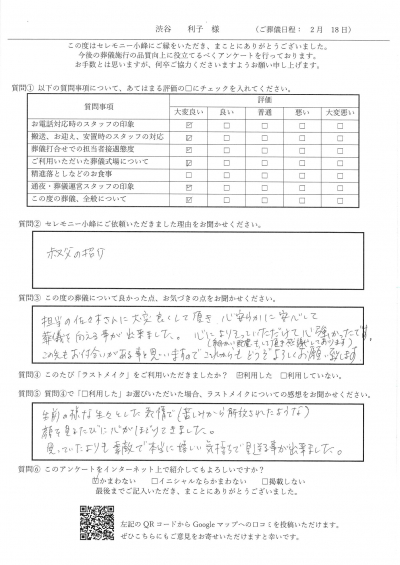 渋谷 利子 様 （ご葬儀日程： 2月 18日）
この度はセレモニー小峰にご縁をいただき、まことにありがとうございました。
今後の葬儀施行の品質向上に役立てるべくアンケートを行っております。
お手数とは思いますが、何卒ご協力くださいますようお願い申し上げます。
質問① 以下の質問事項について、あてはまる評価の□にチェックを入れてください。
質問事項 評価
大変良い 良い 普通 悪い 大変悪い
お電話対応時のスタッフの印象 ☑ □ □ □ □
搬送、お迎え、安置時のスタッフの対応 ☑ □ □ □ □
葬儀打合せでの担当者接遇態度 ☑ □ □ □ □
ご利用いただいた葬儀式場について ☑ □ □ □ □
精進落としなどのお食事 □ □ □ □ □
通夜・葬儀運営スタッフの印象 ☑ □ □ □ □
この度の葬儀、全般について ☑ □ □ □ □
質問② セレモニー小峰にご依頼いただきました理由をお聞かせください。
叔父の紹介
質問③ この度の葬儀について良かった点、お気づきの点をお聞かせください。
担当の佐々木さんに大変良くして頂き 心安らかに安心して
葬儀を向える事が出来ました。 心によりそっていただけて心強かったです。
細かい配慮もして頂き感謝しております
この先もお付合いがある事と思いますのでこれからもどうぞよろしくお願い致します
質問④ このたび「ラストメイク」をご利用いただきましたか？ ☑利用した □利用していない。
質問⑤ 質問④で「□利用した」お選びいただいた場合、ラストメイクについての感想をお聞かせください。
生前の様な生々とした表情で（苦しみから解放されたような）
顔を見るたびに心がほどけてきました。
思っていたよりも素敵で本当に嬉しい気持ちで見送る事が出来ました。
質問⑥ このアンケートをインターネット上で紹介してもよろしいですか？
☑かまわない □イニシャルならかまわない □掲載しない
最後までご記入いただき、まことにありがとうございました。
左記のQRコードからGoogleマップへの口コミを投稿いただけます。
ぜひこちらにもご意見をお寄せいただけますと幸いです。